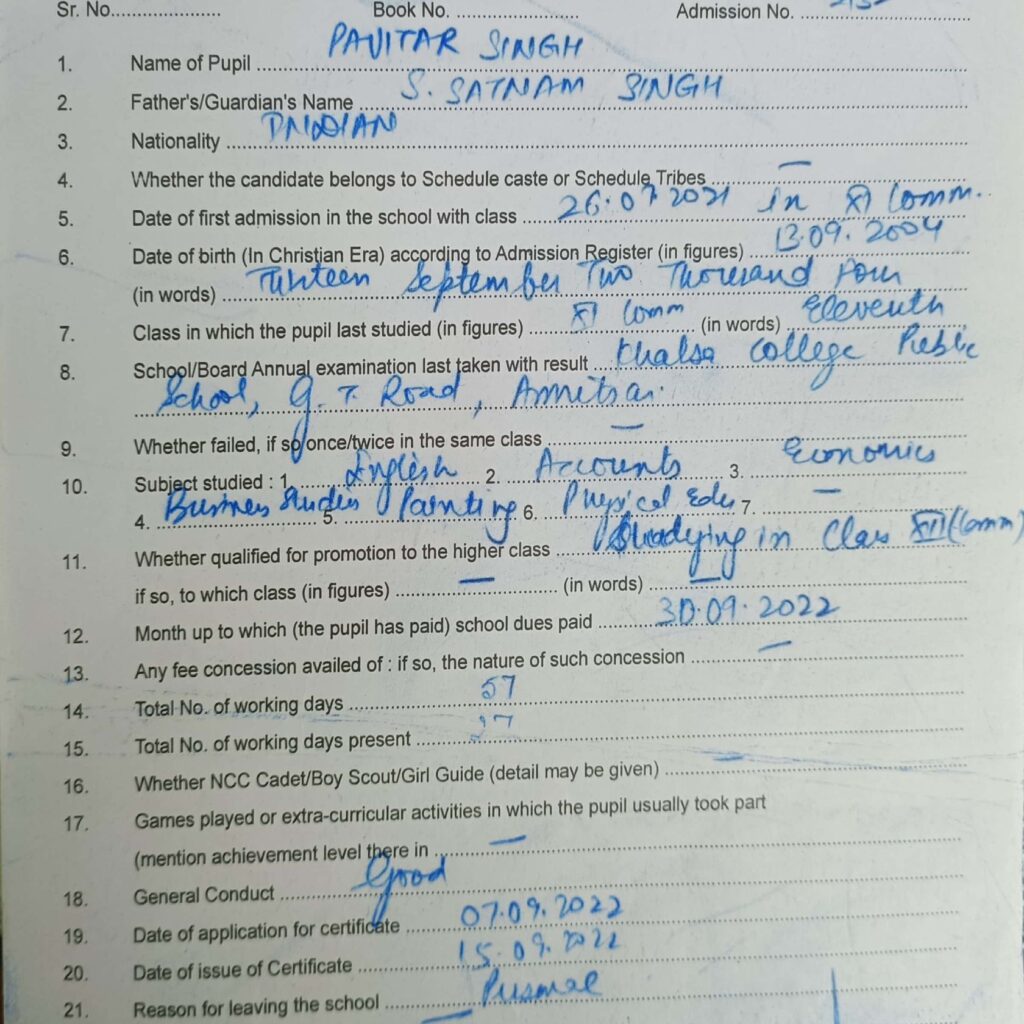 Sr. No..................... Book No. ....................... Admission No. ................................
1. Name of Pupil PAVITAR SINGH
2. Father's/Guardian's Name S. SATNAM SINGH
3. Nationality INDIAN
4. Whether the candidate belongs to Schedule caste or Schedule Tribes –
5. Date of first admission in the school with class 26.07.2021 in XI Comm.
6. Date of birth (In Christian Era) according to Admission Register (in figures) 13.09.2004
(in words) Thirteen September Two Thousand Four
7. Class in which the pupil last studied (in figures) XI Comm (in words) Eleventh
8. School/Board Annual examination last taken with result Khalsa College Public
School, G.T. Road, Amritsar.
9. Whether failed, if so once/twice in the same class –
10. Subject studied : 1. English 2. Accounts 3. Economics
4. Business Studies 5. Painting 6. Physical Edu 7. –
11. Whether qualified for promotion to the higher class Studying in Class XII (Comm)
if so, to which class (in figures) – (in words) –
12. Month up to which (the pupil has paid) school dues paid 30.09.2022
13. Any fee concession availed of : if so, the nature of such concession –
14. Total No. of working days 57
15. Total No. of working days present
16. Whether NCC Cadet/Boy Scout/Girl Guide (detail may be given) –
17. Games played or extra-curricular activities in which the pupil usually took part
(mention achievement level there in –
18. General Conduct Good
19. Date of application for certificate 07.09.2022
20. Date of issue of Certificate 15.09.2022
21. Reason for leaving the school